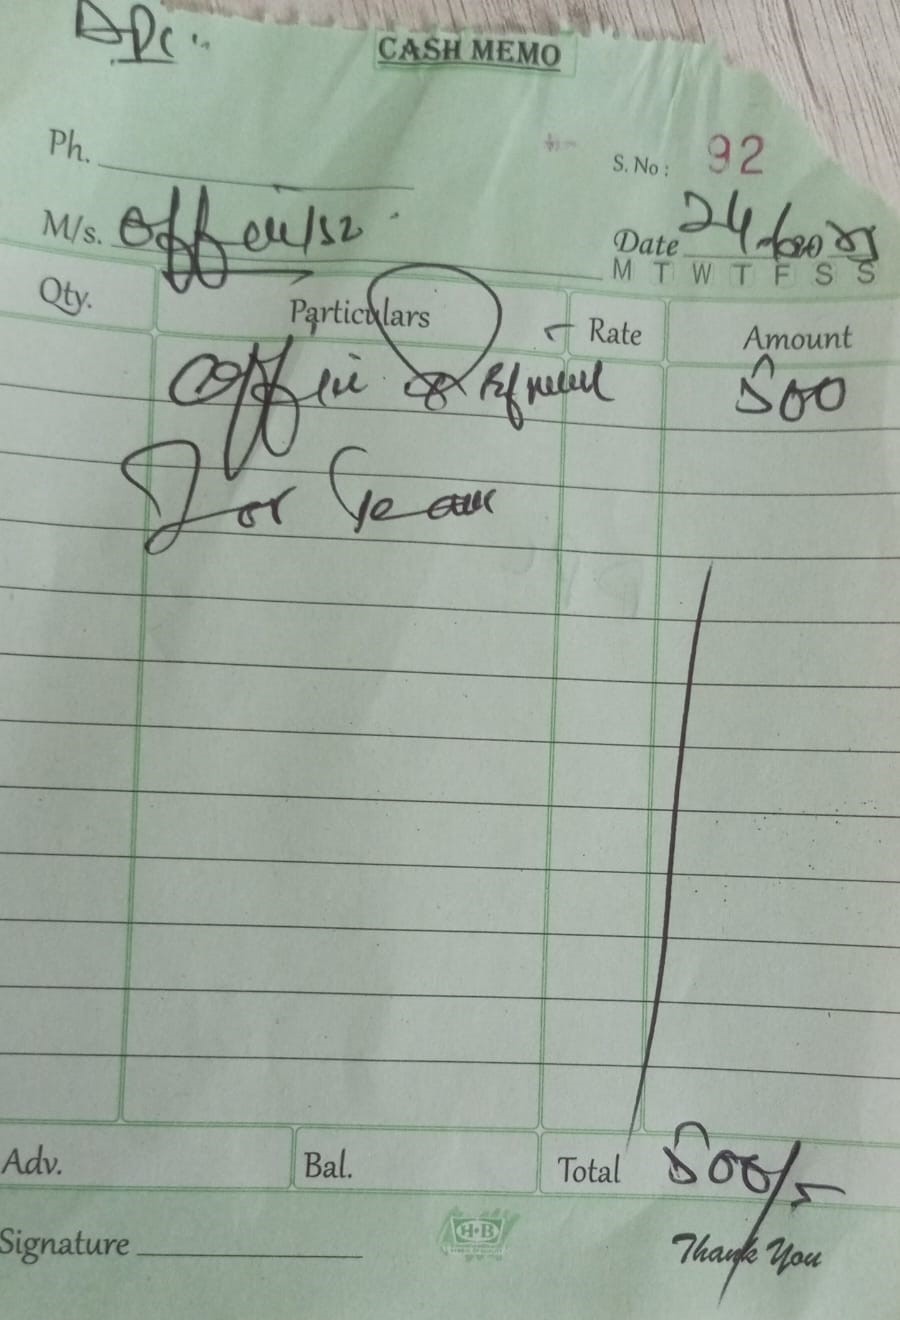 DPC
CASH MEMO
Ph.
S. No : 92
M/s.
Date 24
M T W T F S S
Qty. Particulars Rate Amount
500
For Team
Adv. Bal. Total 500/-
Signature
H·B
Thank You